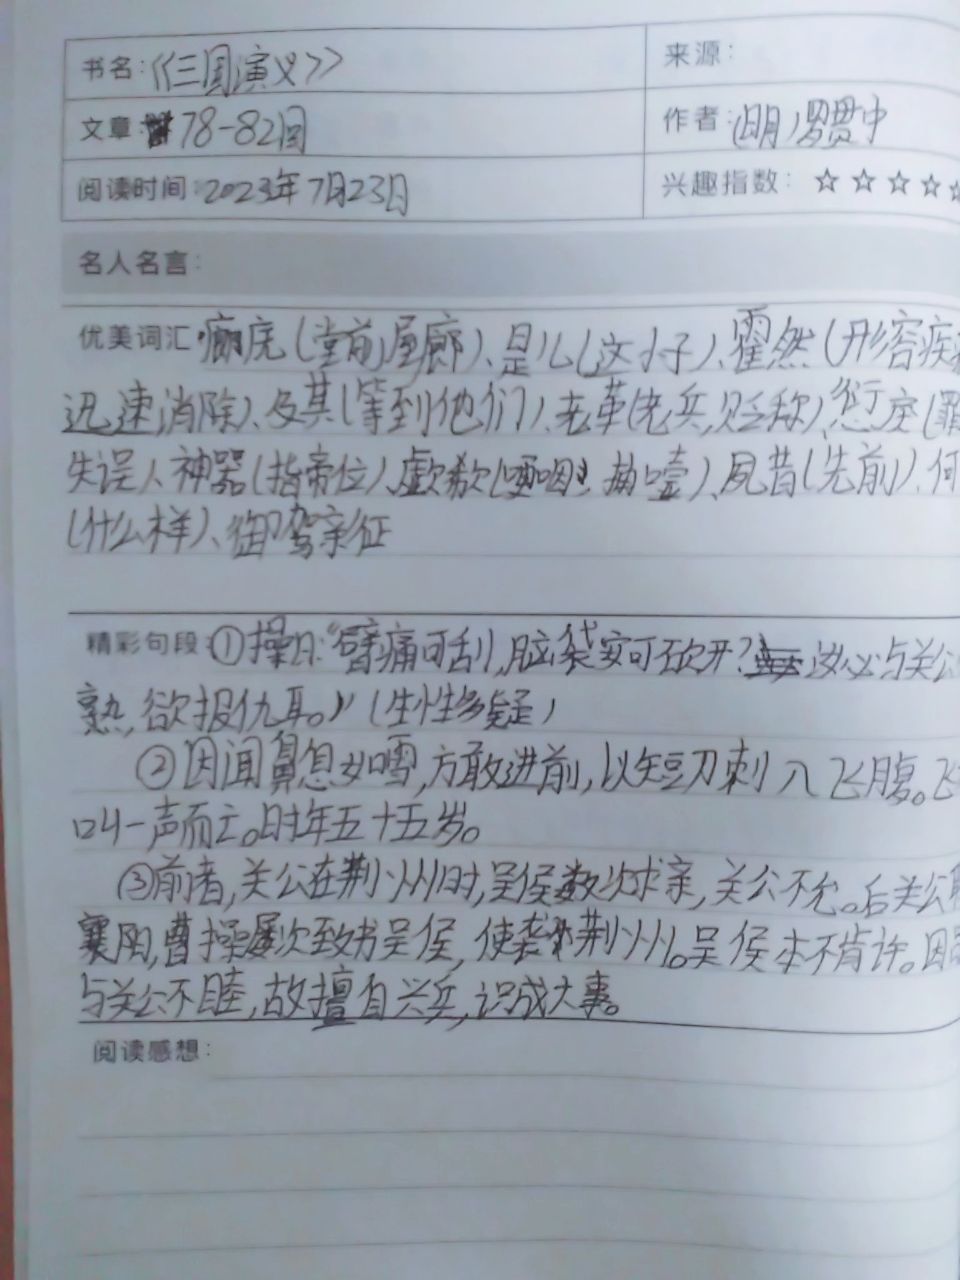 书名:《三国演义》
来源:
文章: 78-82回
作者:(明)罗贯中
阅读时间:2023年7月23日
兴趣指数: ☆☆☆☆☆
名人名言:
优美词汇 庑(堂前屋廊)、是儿(这小子)、霍然(形容疾病
迅速消除)、及其(等到他们)、老革(老兵,贬称)、愆(罪
失误)、神器(指帝位)、歔欷(哽咽,抽噎)、夙昔(先前)、何
(什么样)、御驾亲征
精彩句段:①操曰:“臂痛可刮,脑袋安可砍开?汝必与关公
熟,欲报仇耳。”(生性多疑)
②因闻鼻息如雷,方敢进前,以短刀刺入飞腹。飞
叫一声而亡。时年五十五岁。
③前者,关公在荆州时,吴侯数次求亲,关公不允。后关公取
襄阳,曹操屡次致书吴侯,使袭荆州。吴侯本不肯许。因
与关公不睦,故擅自兴兵,识成大事。
阅读感想: